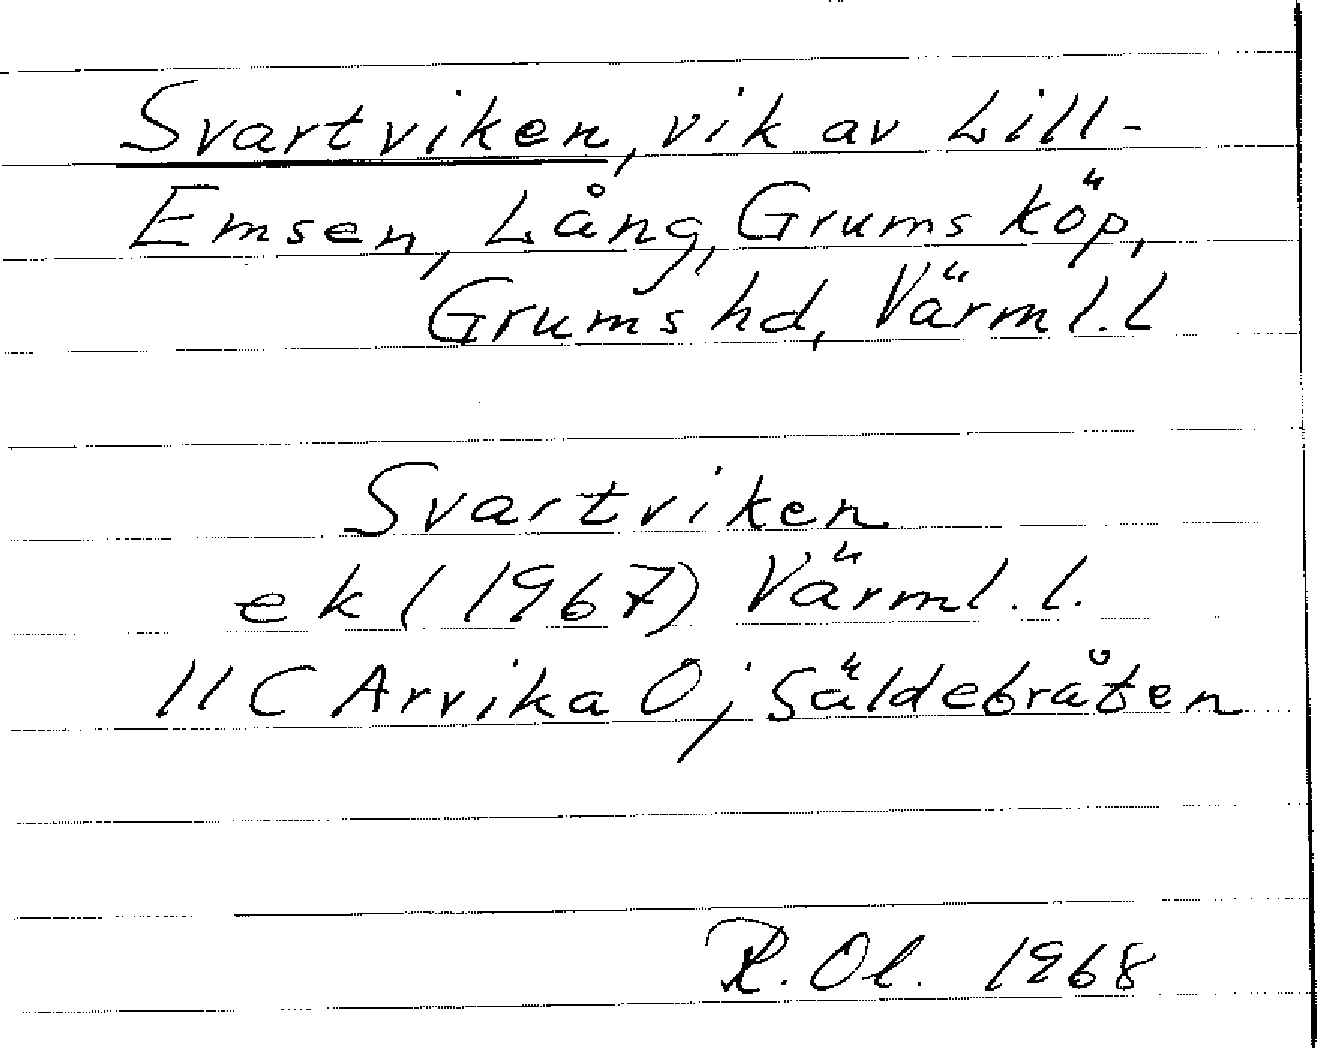 Svartviken, vik av Lill-
Emsen, Lång, Grums köp,
Grums hd, Värml. l
Svartviken
ek (1967) Värml. l.
11C Arvika O; Säldebråten
R. Ol. 1968